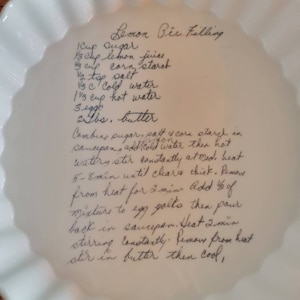 Lemon Pie Filling
1 cup sugar
1/2 cup lemon juice
1/3 cup corn starch
1/2 tsp salt
1/2 C cold water
1 1/3 cup hot water
3 eggs
2 tbs. butter
Combine sugar, salt & corn starch in
saucepan, add cold water then hot
water, stir constantly at med. heat
5-8 min until clear & thick. Remove
from heat for 2 min Add 1/3 of
mixture to egg yolks then pour
back in saucepan. Heat 2 min
stirring constantly. Remove from heat
stir in butter then cool,